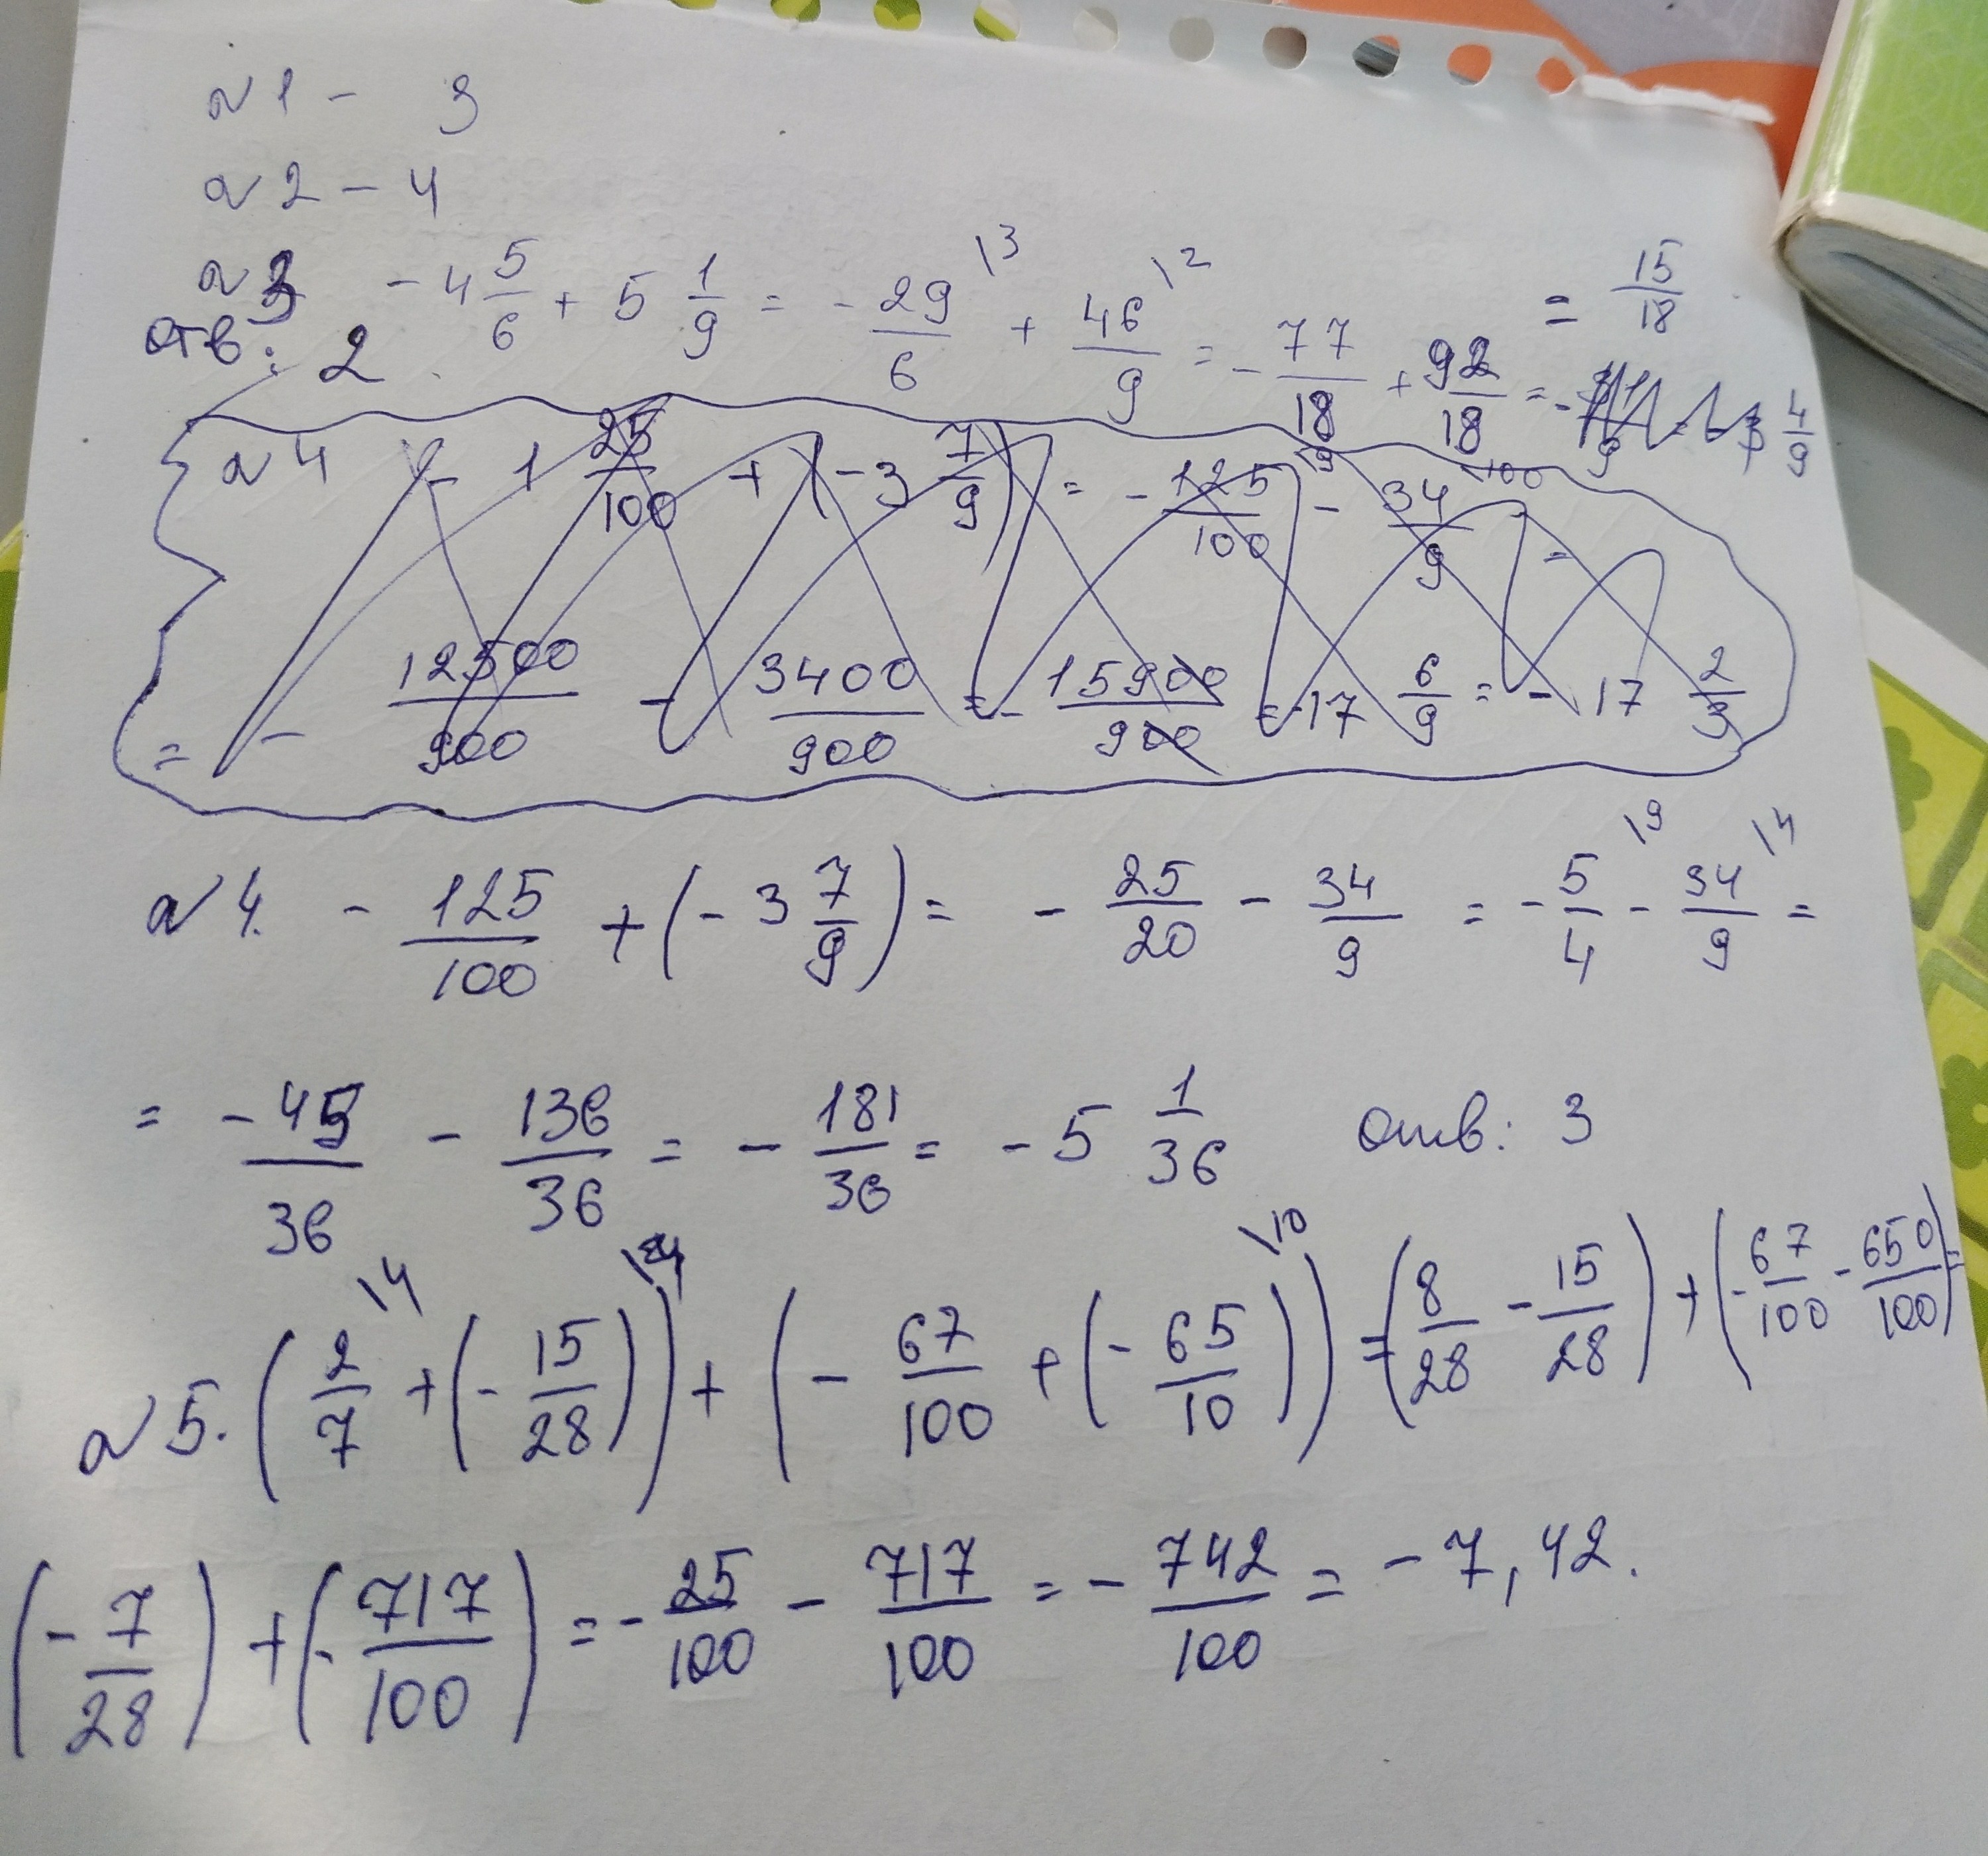 №1 - 3
№2 - 4
№3 -4 5/6 + 5 1/9 = -29/6 \3 + 46/9 \2 = -77/18 + 92/18 = = 15/18
Отв: 2
№4 -1 25/100 + (-3 7/9) = -125/100 \9 - 34/9 \100 =
= -12500/900 - 3400/900 = -15900/900 = -17 6/9 = -17 2/3
№4. -125/100 + (-3 7/9) = -25/20 - 34/9 = -5/4 \9 - 34/9 \4 =
= -45/36 - 136/36 = -181/36 = -5 1/36 Отв: 3
№5. (2/7 \4 + (-15/28)) + (-67/100 + (-65/10 \10)) = (8/28 - 15/28) + (-67/100 - 650/100) =
(-7/28) + (-717/100) = -25/100 - 717/100 = -742/100 = -7,42.